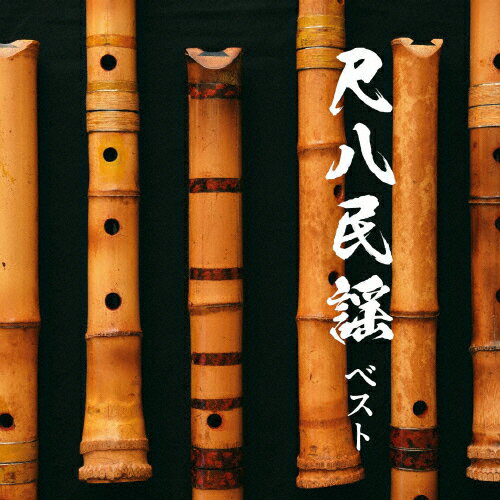 尺八民謡
ベスト